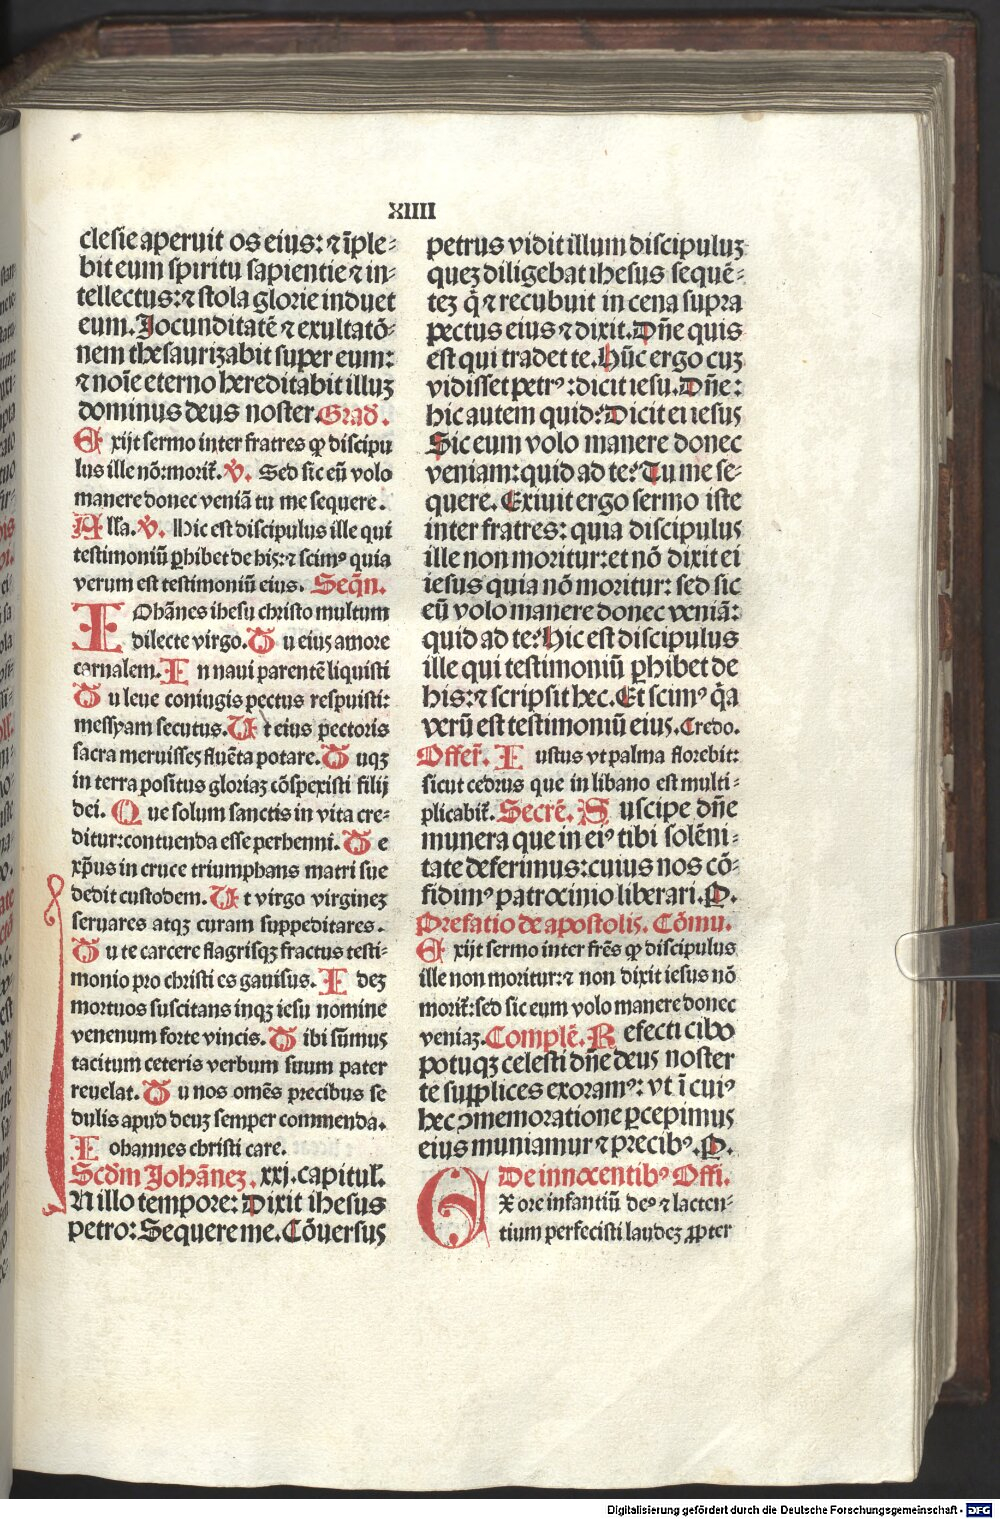 XIIII
clesie aperuit os eius: ⁊ īple⸗
bit eum spiritu sapientie ⁊ in⸗
tellectus: ⁊ stola glorie induet
eum. Jocunditatē ⁊ exultatō⸗
nem thesaurizabit super eum:
⁊ noīe eterno hereditabit illuꝫ
dominus deus noster. Grad̄.
Exijt sermo inter fratres ꝙ discipu
lus ille nō: morit᷑. ℣. Sed sic eū volo
manere donec veniā tu me sequere.
Alla. ℣. Hic est discipulus ille qui
testimoniū ꝑhibet de his: ⁊ scimꝰ quia
verum est testimoniū eius. Seqn̄.
IOhānes ihesu christo multum
dilecte virgo. Tu eius amore
carnalem. In naui parentē liquisti
Tu leue coniugis pectus respuisti:
messyam secutus. Ut eius pectoris
sacra meruisseꝫ fluēta potare. Tuqꝫ
in terra positus gloriaꝫ cōspexisti filij
dei. Que solum sanctis in vita cre⸗
ditur: contuenda esse perhenni. Te
xp̄us in cruce triumphans matri sue
dedit custodem. Ut virgo virgineꝫ
seruares atqꝫ curam suppeditares.
Tu te carcere flagrisqꝫ fractus testi⸗
monio pro christi es gauisus. Ideꝫ
mortuos suscitans inqꝫ iesu nomine
venenum forte vincis. Tibi sūmus
tacitum ceteris verbum suum pater
reuelat. Tu nos omēs precibus se
dulis apud deuꝫ semper commenda.
Iohannes christi care.
Scd̄m Johāneꝫ. xxj. capitul̄.
In illo tempore: Dixit ihesus
petro: Sequere me. Cōuersus
petrus vidit illum discipuluꝫ
queꝫ diligebat ihesus sequē⸗
teꝫ q̄ ⁊ recubuit in cena supra
pectus eius ⁊ dixit. Dn̄e quis
est qui tradet te. Hūc ergo cuꝫ
vidisset petrꝰ: dicit iesu. Dn̄e:
hic autem quid? Dicit ei iesus
Sic eum volo manere donec
veniam: quid ad te? Tu me se⸗
quere. Exiuit ergo sermo iste
inter fratres: quia discipulus
ille non moritur: et nō dixit ei
iesus quia nō moritur: sed sic
eū volo manere donec veniā:
quid ad te? Hic est discipulus
ille qui testimoniū ꝑhibet de
his: ⁊ scripsit hec. Et scimꝰ q̄a
verū est testimoniū eius. Credo.
Offer᷑. Iustus vt palma florebit:
sicut cedrus que in libano est multi⸗
plicabit᷑. Secrē. Suscipe dn̄e
munera que in eiꝰ tibi solēni⸗
tate deferimus: cuius nos cō⸗
fidimꝰ patrocinio liberari. P.
Prefatio de apostolis. Cōmu.
Exijt sermo inter frēs ꝙ discipulus
ille non moritur: ⁊ non dixit iesus nō
morit᷑: sed sic eum volo manere donec
veniaꝫ. Complē. Refecti cibo
potuqꝫ celesti dn̄e deus noster
te supplices exoramꝰ: vt ī cuiꝰ
hec ↄmemoratione ꝑcepimus
eius muniamur ⁊ precibꝰ. P.
De innocentibꝰ Offi.
EX ore infantiū deꝰ ⁊ lacten⸗
tium perfecisti laudeꝫ ꝓpter
Digitalisierung gefördert durch die Deutsche Forschungsgemeinschaft - DFG